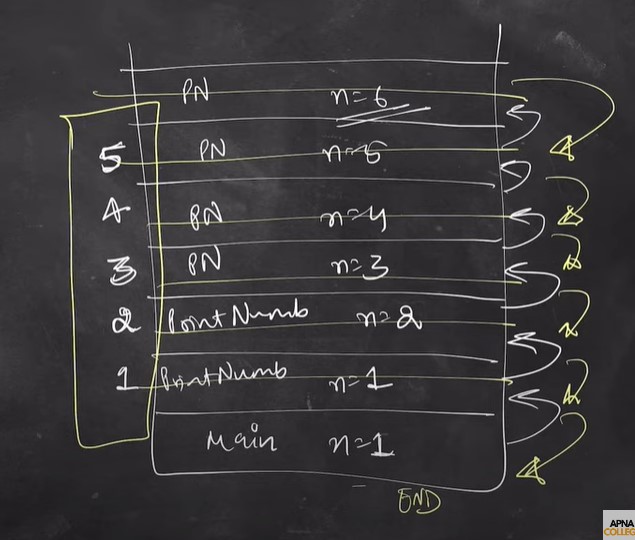 PN n=6
5 PN n=5
4 PN n=4
3 PN n=3
2 Print Numb n=2
1 Print Numb n=1
Main n=1
END
APNA
COLLEG